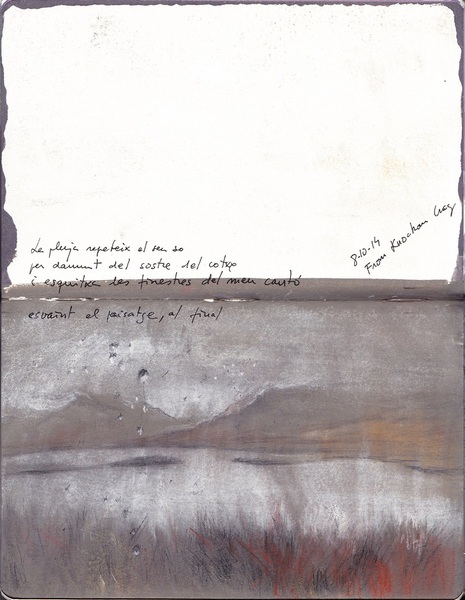 La pluja repeteix el seu so
per damunt del sostre del cotxe
i esquitxa les finestres del meu cantó
esvaint el paisatge, al final
8-10-14
From Knockan